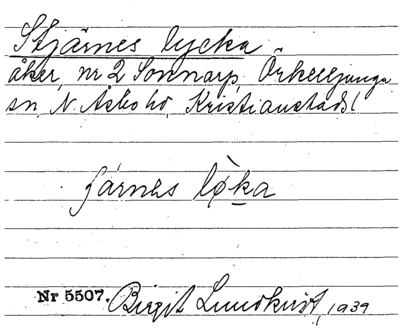 Stjärnes lycka
åker, nr 2 Sonnarp, Örkelljunga
sn, N. Åsbo hd, Kristianstads l
járnes lø̀ka
Nr 5507. Birgit Lundkvist, 1939